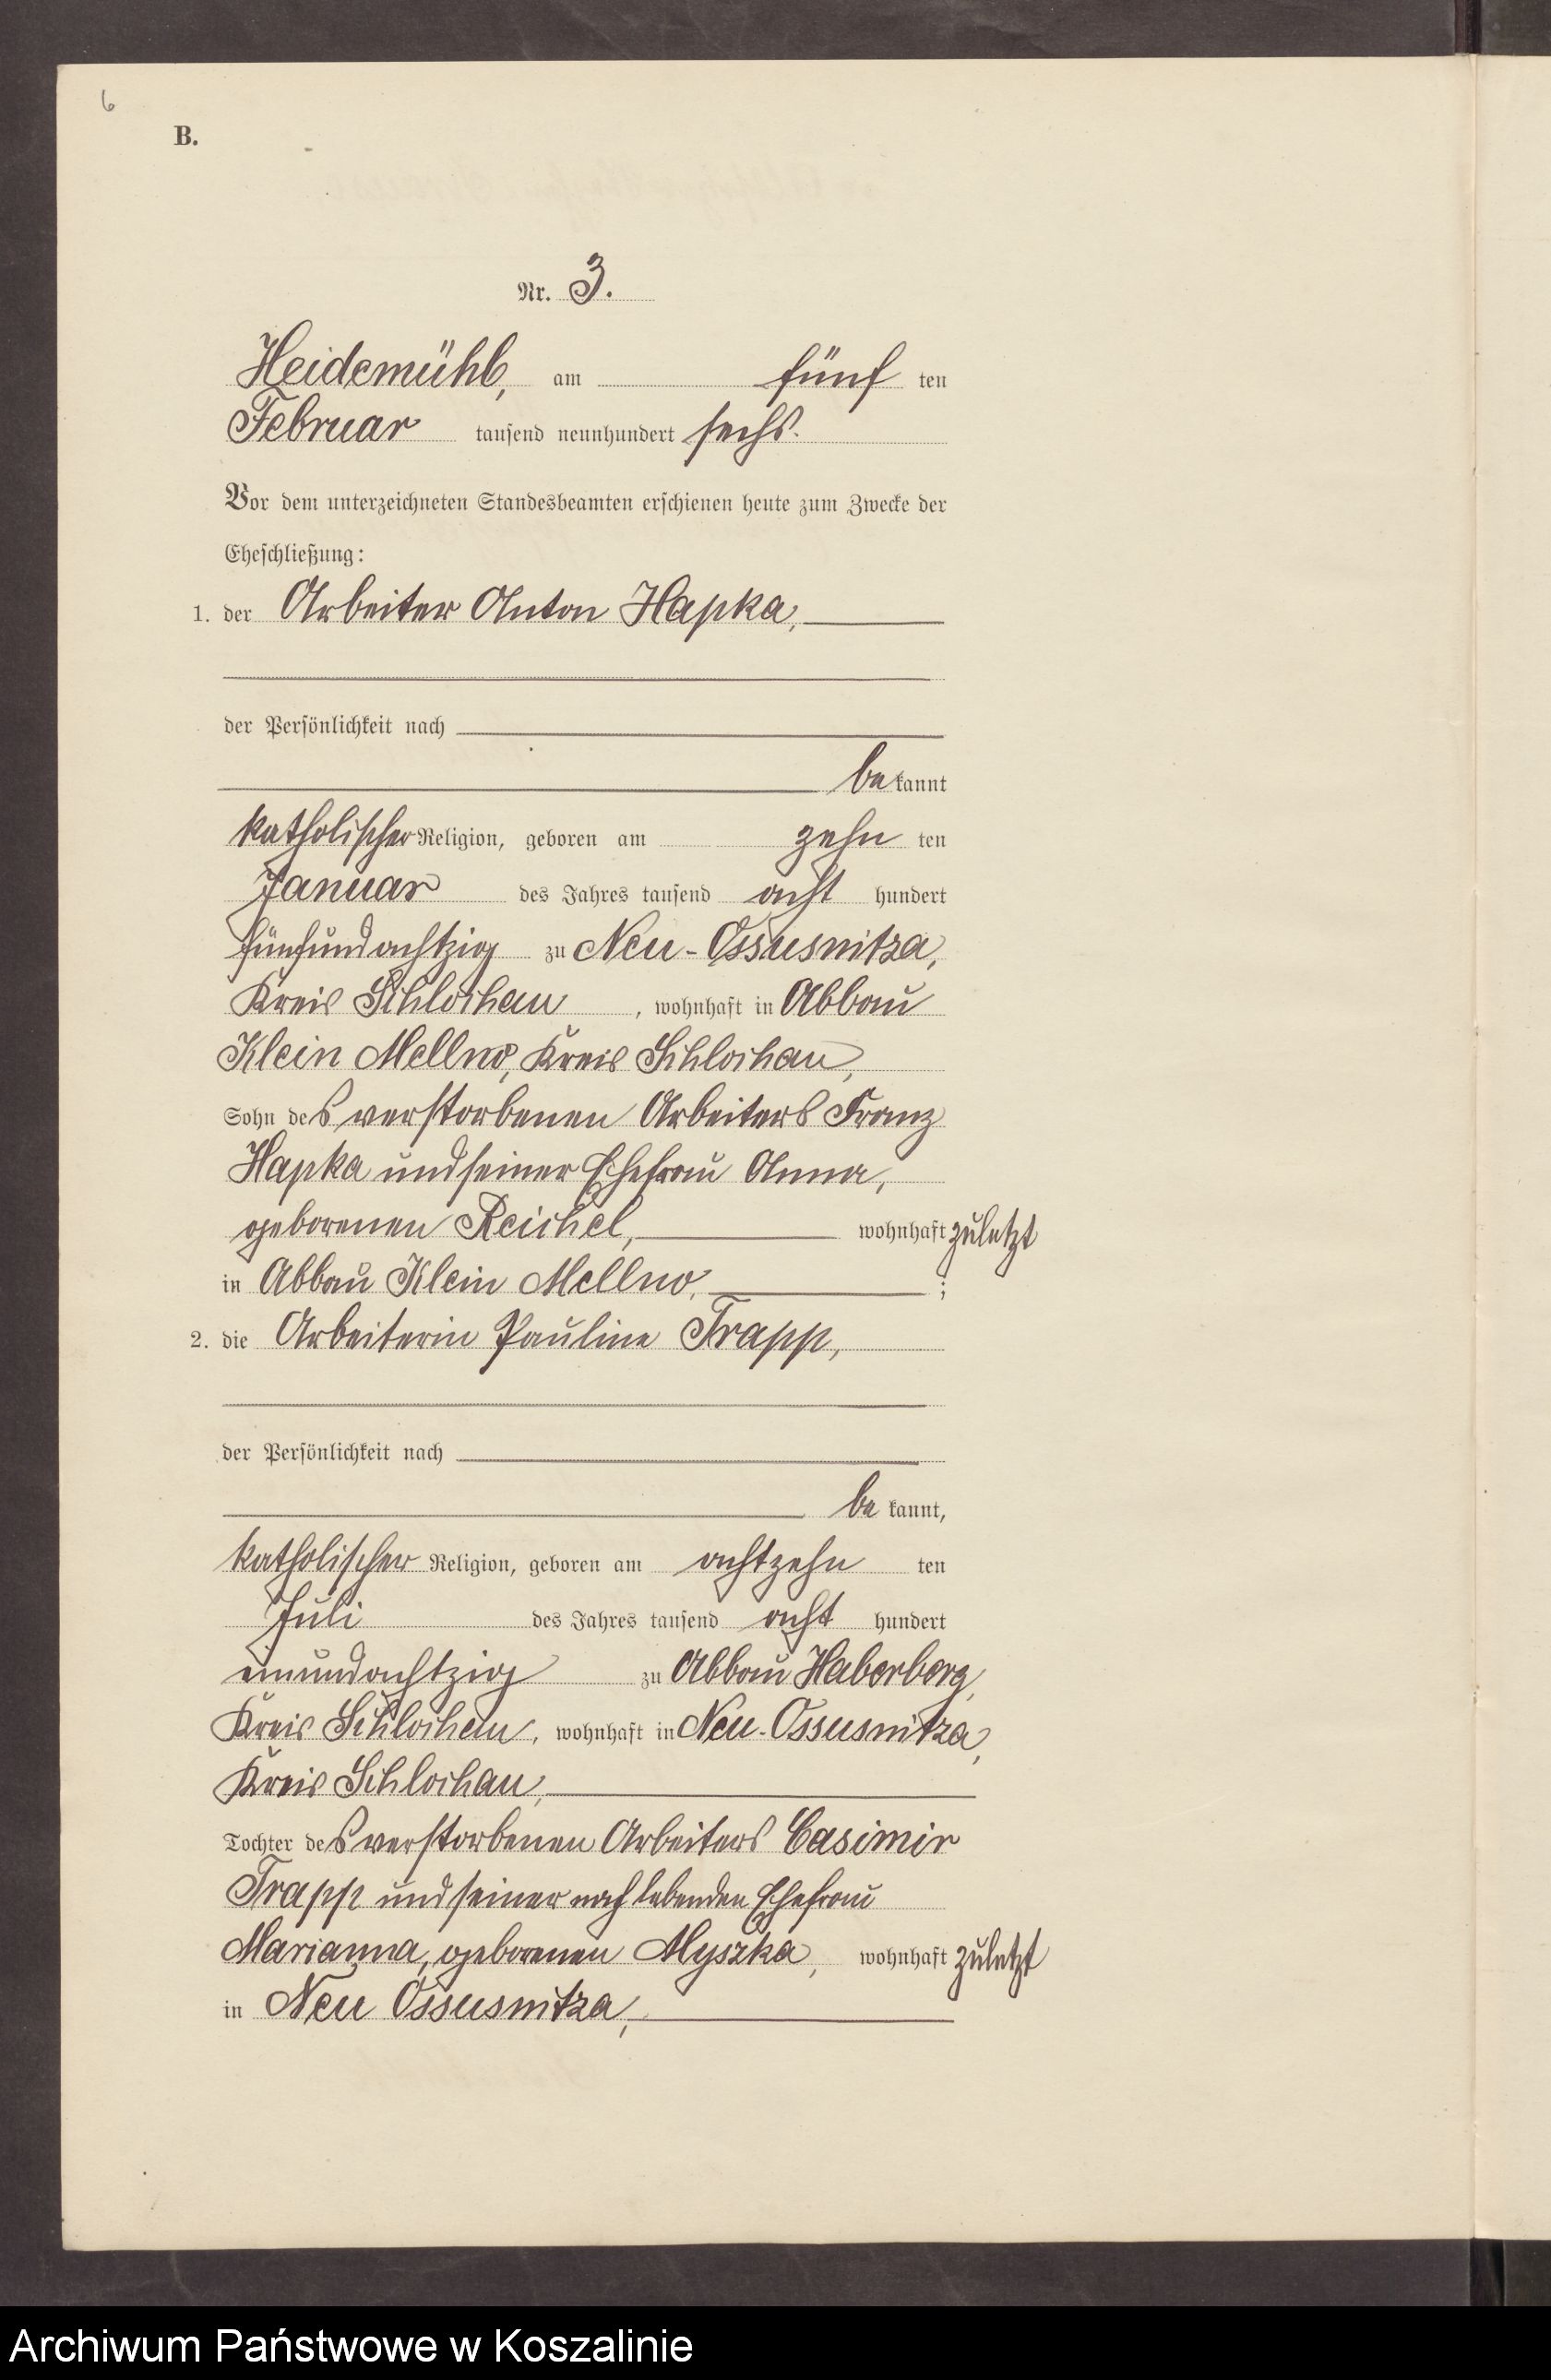 6
B.
Nr. 3.
Heidemühl, am fünf ten
Februar tausend neunhundert sechs.
Vor dem unterzeichneten Standesbeamten erschienen heute zum Zwecke der
Eheschließung:
1. der Arbeiter Anton Hapka,
der Persönlichkeit nach
be kannt
katholischer Religion, geboren am zehn ten
Januar des Jahres tausend acht hundert
fünfundachtzig zu Neu-Ossusnitza,
Kreis Schlochau, wohnhaft in Abbau
Klein Mellno, Kreis Schlochau,
Sohn des verstorbenen Arbeiters Franz
Hapka und seiner Ehefrau Anna,
geborenen Reichel, wohnhaft zuletzt
in Abbau Klein Mellno, ;
2. die Arbeiterin Pauline Trapp,
der Persönlichkeit nach
be kannt,
katholischer Religion, geboren am achtzehn ten
Juli des Jahres tausend acht hundert
einundachtzig zu Abbau Haberberg,
Kreis Schlochau, wohnhaft in Neu-Ossusnitza,
Kreis Schlochau,
Tochter des verstorbenen Arbeiters Casimir
Trapp und seiner noch lebenden Ehefrau
Marianna, geborenen Myszka, wohnhaft zuletzt
in Neu Ossusnitza,
Archiwum Państwowe w Koszalinie